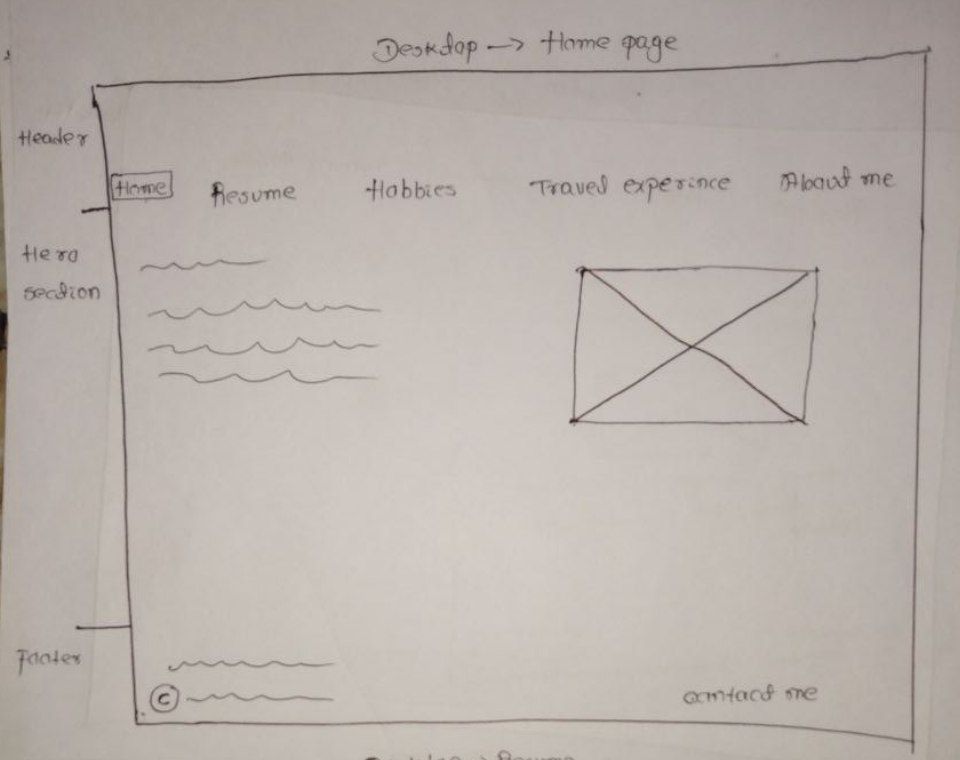 Desktop → Home page
Header
Home Resume Hobbies Travel experince About me
Hero
section
Footer
©
contact me